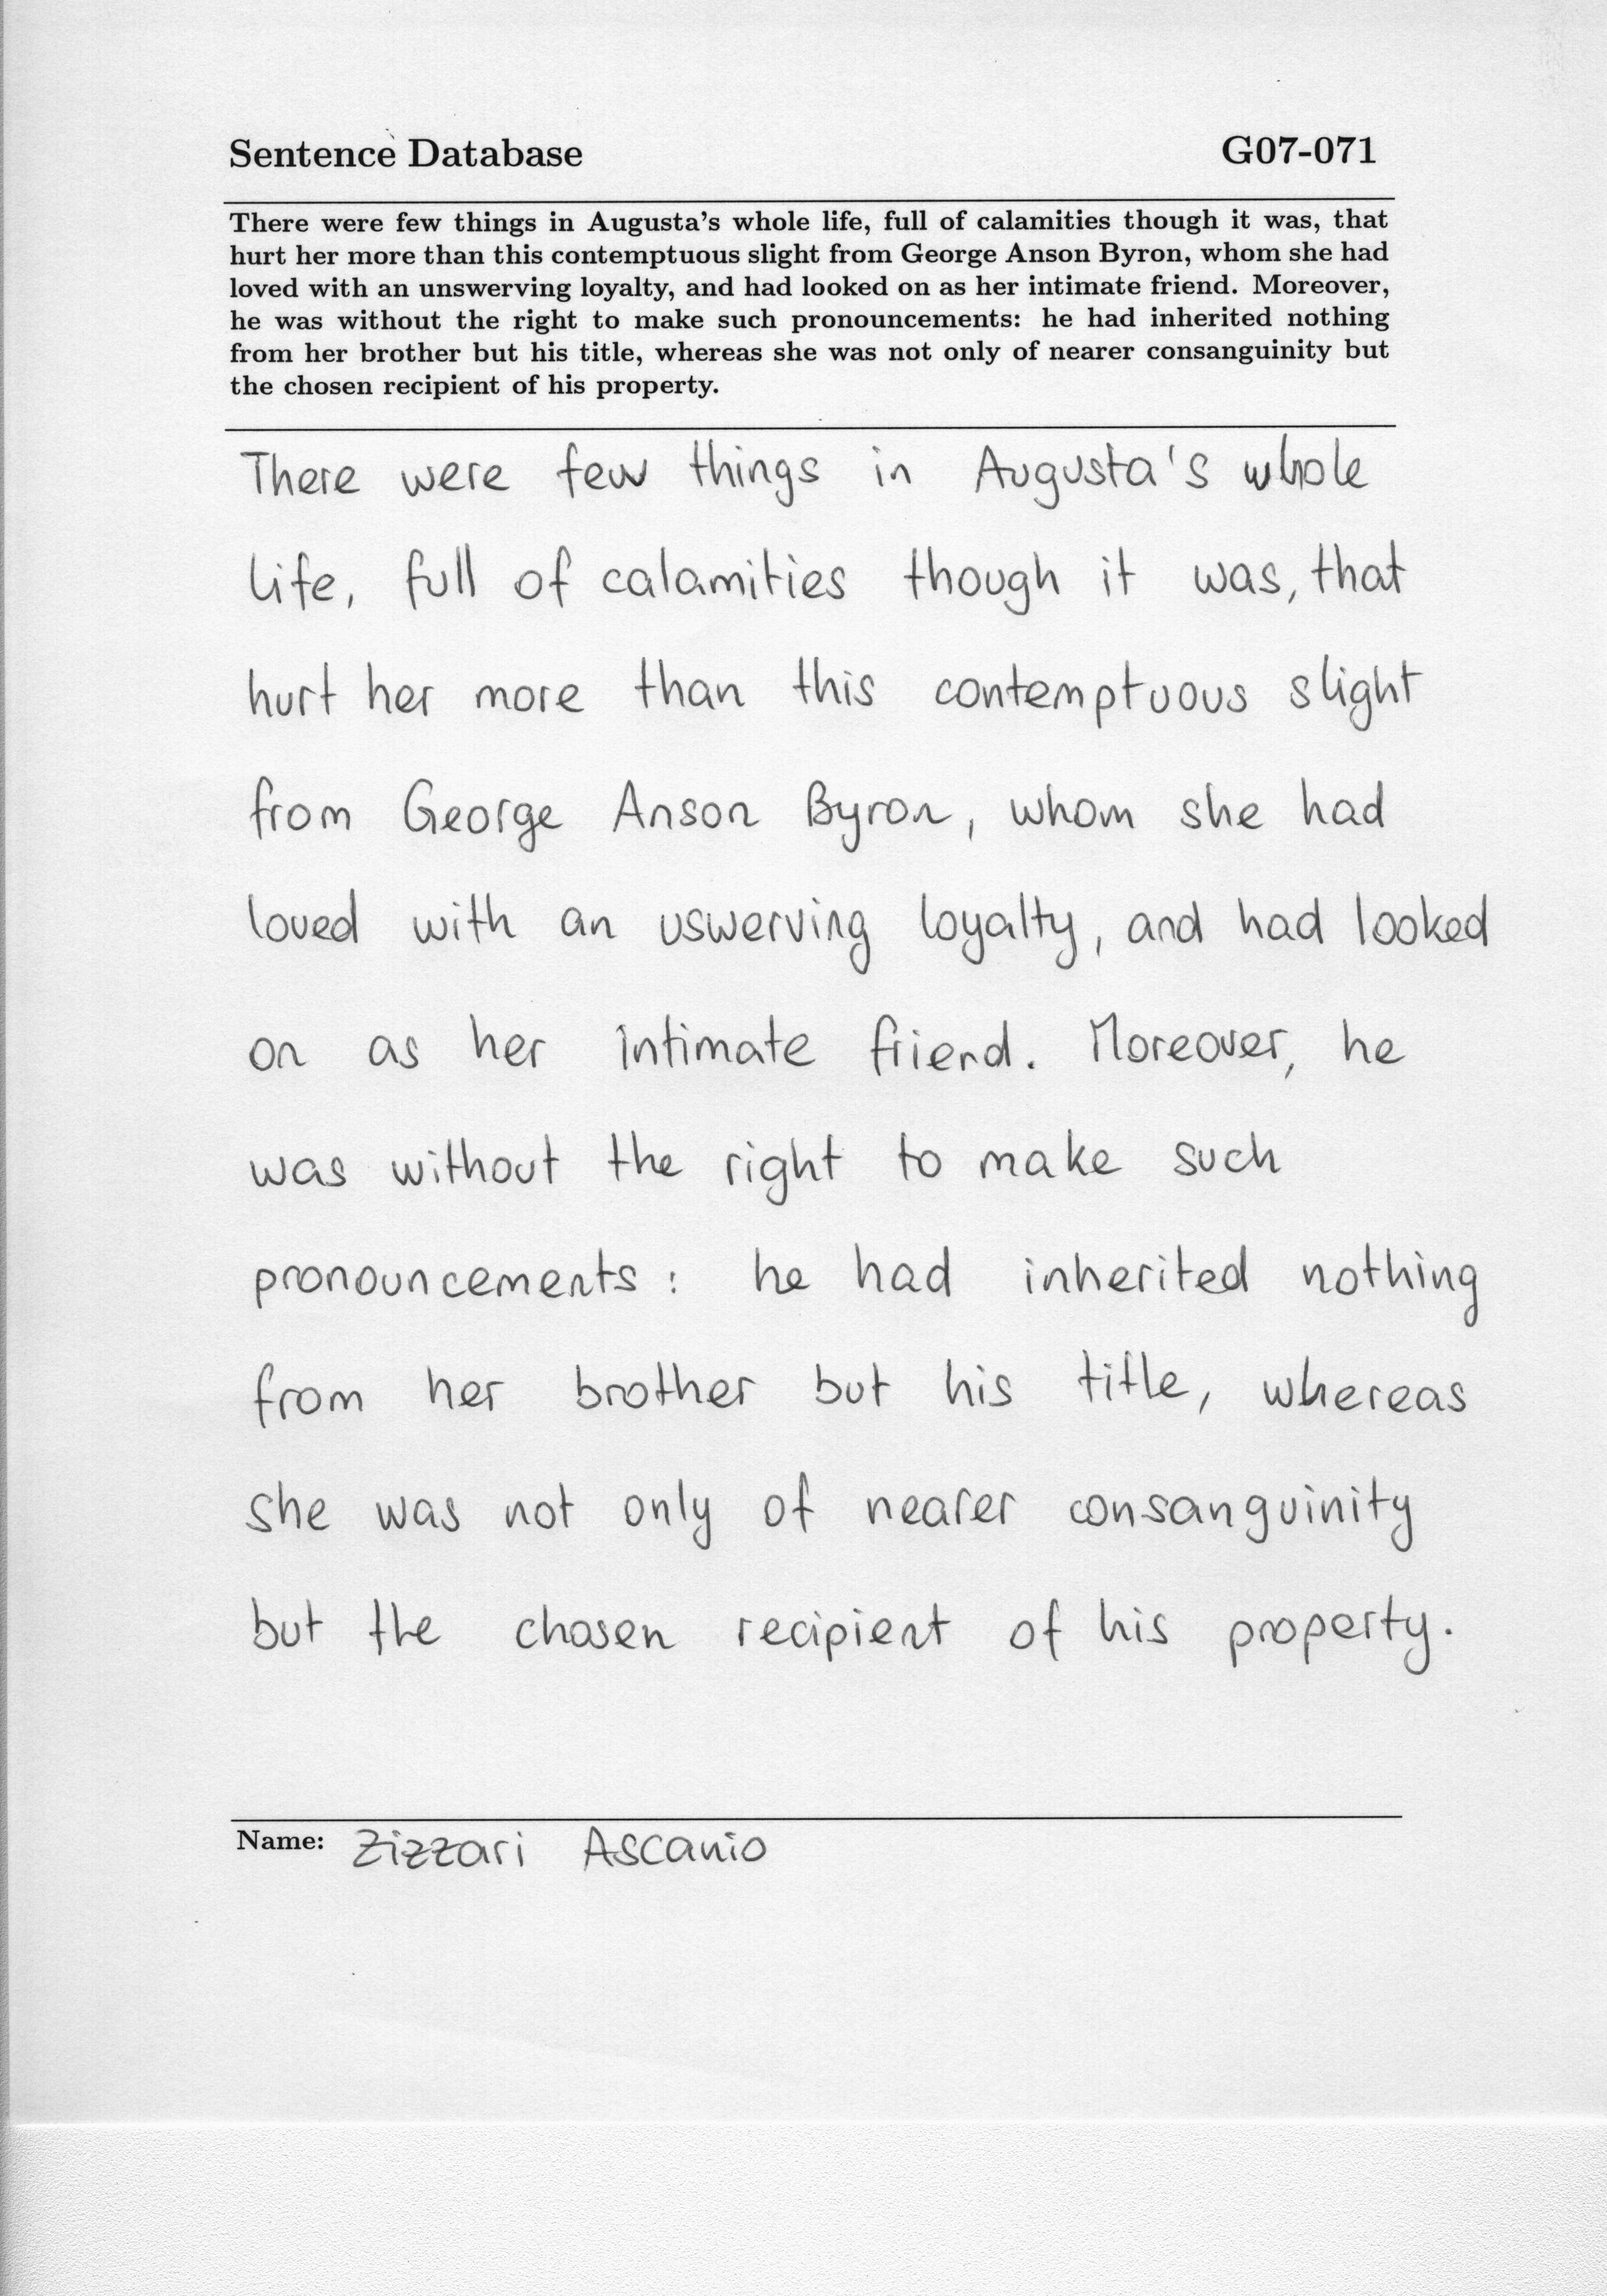 Sentence Database G07-071
There were few things in Augusta's whole life, full of calamities though it was, that
hurt her more than this contemptuous slight from George Anson Byron, whom she had
loved with an unswerving loyalty, and had looked on as her intimate friend. Moreover,
he was without the right to make such pronouncements: he had inherited nothing
from her brother but his title, whereas she was not only of nearer consanguinity but
the chosen recipient of his property.
There were few things in Augusta's whole
life, full of calamities though it was, that
hurt her more than this contemptuous slight
from George Anson Byron, whom she had
loved with an uswerving loyalty, and had looked
on as her intimate friend. Moreover, he
was without the right to make such
pronouncements: he had inherited nothing
from her brother but his title, whereas
she was not only of nearer consanguinity
but the chosen recipient of his property.
Name: Zizzari Ascanio